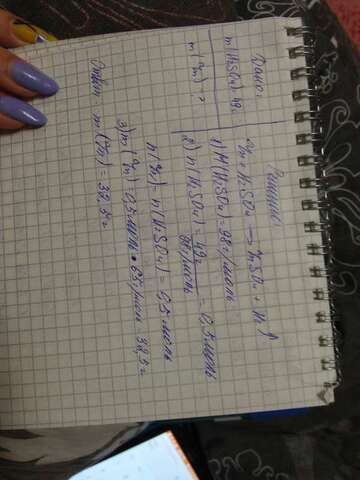 Дано:
m(H₂SO₄)=49г
m(Zn)-?
Решение
Zn + H₂SO₄ → ZnSO₄ + H₂↑
1) M(H₂SO₄)=98г/моль
2) n(H₂SO₄)= 49г / 98г/моль = 0,5моль
n(Zn)=n(H₂SO₄)=0,5 моль
3) m(Zn)=0,5моль • 65г/моль=32,5г
Ответ: m(Zn)=32,5г